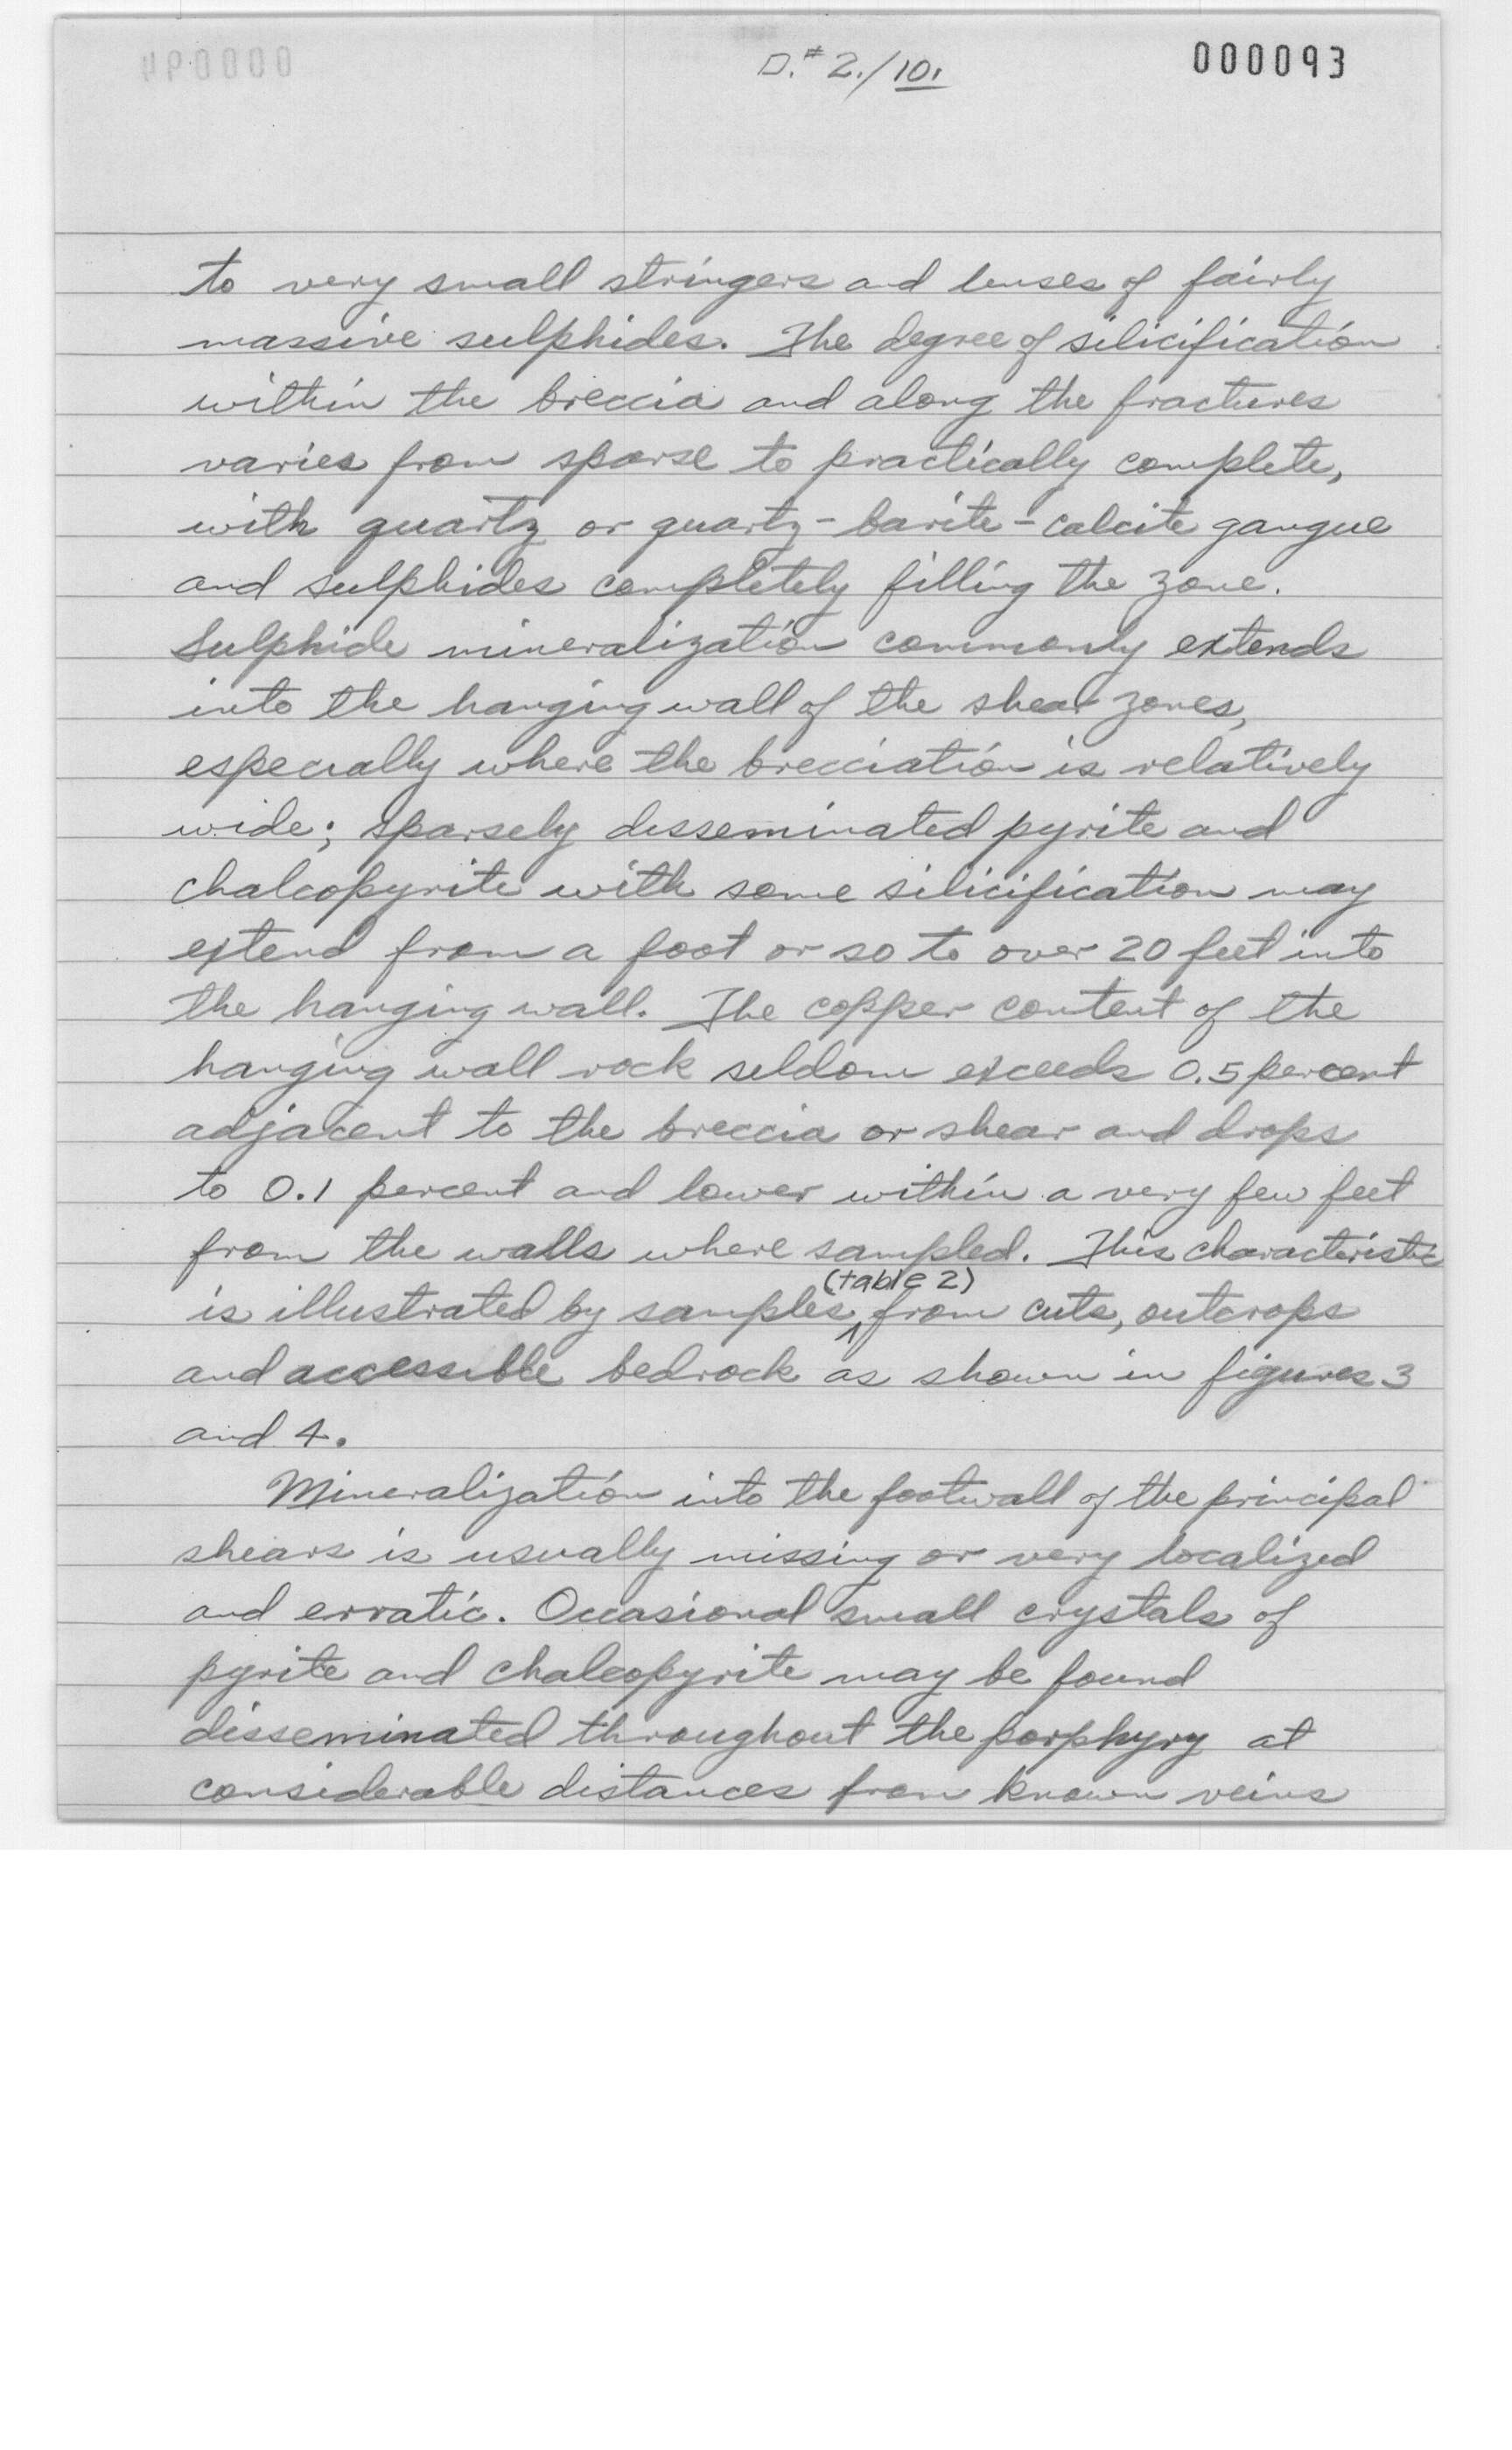 D.# 2./10.
000093
to very small stringers and lenses of fairly
massive sulphides. The degree of silicification
within the breccia and along the fractures
varies from sparse to practically complete,
with quartz or quartz-barite-calcite gangue
and sulphides completely filling the zone.
Sulphide mineralization commonly extends
into the hanging wall of the shear zones,
especially where the brecciation is relatively
wide; sparsely disseminated pyrite and
chalcopyrite with some silicification may
extend from a foot or so to over 20 feet into
the hanging wall. The copper content of the
hanging wall rock seldom exceeds 0.5 percent
adjacent to the breccia or shear and drops
to 0.1 percent and lower within a very few feet
from the walls where sampled. This characteristic
(table 2)
is illustrated by samples from cuts, outcrops
and accessible bedrock as shown in figures 3
and 4.
Mineralization into the footwall of the principal
shears is usually missing or very localized
and erratic. Occasional small crystals of
pyrite and chalcopyrite may be found
disseminated throughout the porphyry at
considerable distances from known veins